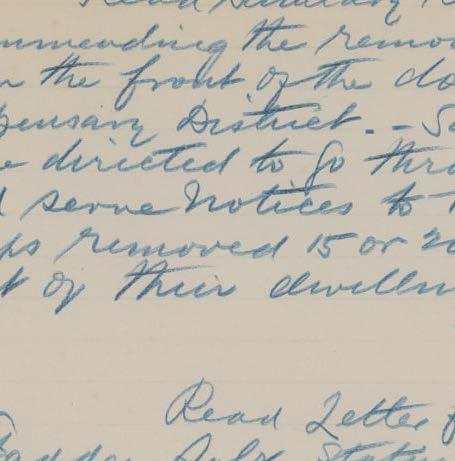 Read Sanitary
mmending the remov
n the front of the do
pensary District. - S
e directed to go thro
d serve Notices to
ps removed 15 or 20
t of their dwellin
Read Letter f